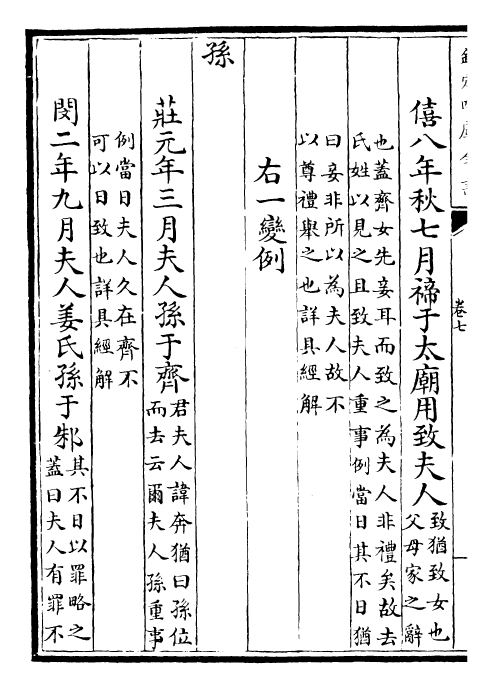 欽定四庫全書
卷七
僖八年秋七月禘于太廟用致夫人
致猶致女也
父母家之辭
也蓋齊女先妾耳而致之為夫人非禮矣故去
氏姓以見之且致夫人重事例當日其不日猶
曰妾非所以為夫人故不
以尊禮舉之也詳具經解
右一變例
孫
莊元年三月夫人孫于齊
君夫人諱奔猶曰孫位
而去云爾夫人孫重事
例當日夫人久在齊不
可以日致也詳具經解
閔二年九月夫人姜氏孫于邾
其不日以罪略之
蓋曰夫人有罪不